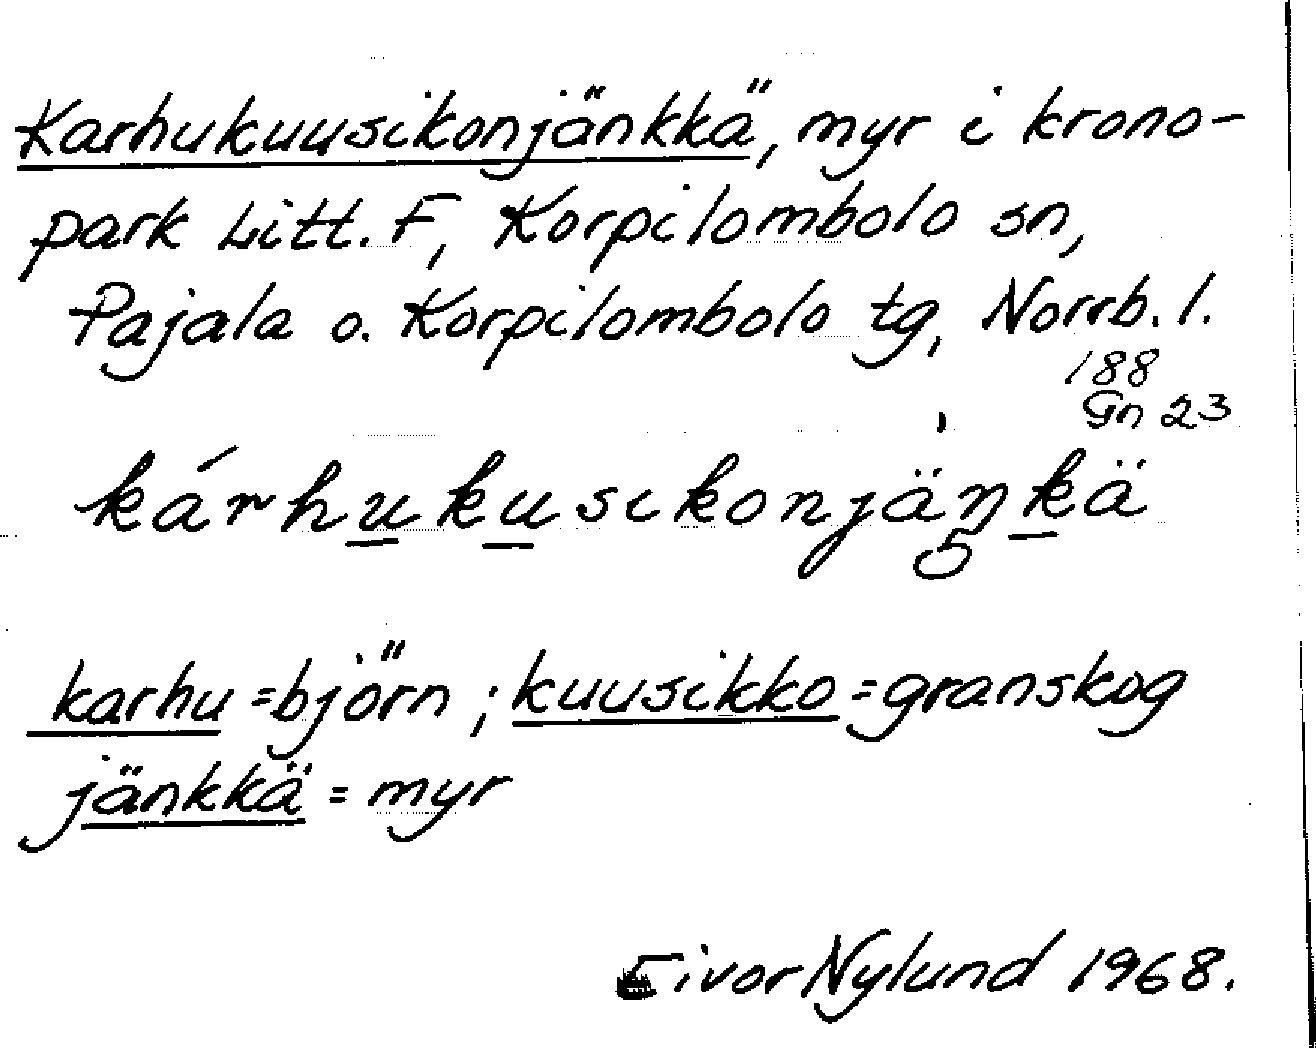 Karhukuusikonjänkkä, myr i krono-
park Litt. F, Korpilombolo sn,
Pajala o. Korpilombolo tg, Norrb. l.
188
Gn 23
kárhu̲ku̲sikonjä̀ŋk̲ä
5
karhu = björn ; kuusikko = granskog
jänkkä = myr
Eivor Nylund 1968.